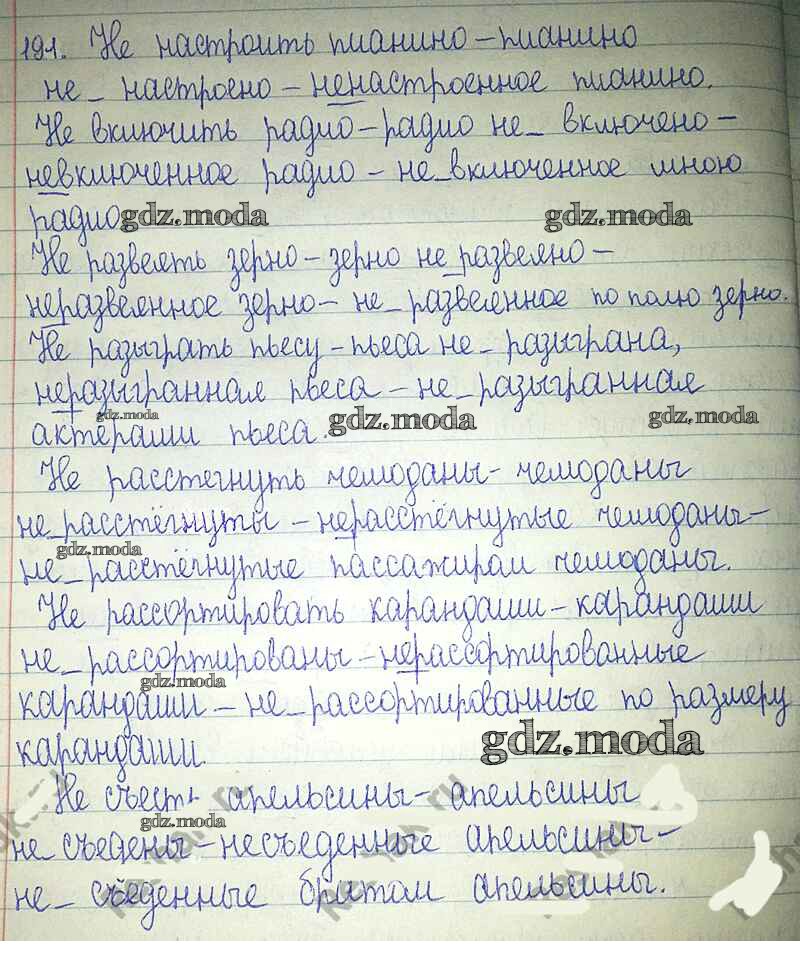 191. Не настроить пианино – пианино
не_ настроено – ненастроенное пианино.
Не включить радио – радио не_ включено –
невключенное радио – не_включенное мною
радио gdz.moda gdz.moda
Не развеять зерно – зерно не_развеяно –
неразвеянное зерно – не_ развеянное по полю зерно.
Не разыграть пьесу – пьеса не_ разыграна,
неразыгранная пьеса – не_ разыгранная
gdz.moda
актёрами пьеса. gdz.moda gdz.moda
Не расстегнуть чемоданы – чемоданы
не_расстёгнуты – нерасстёгнутые чемоданы –
gdz.moda
не_ расстёгнутые пассажирам чемоданы.
Не рассортировать карандаши – карандаши
не_ рассортированы – нерассортированные
gdz.moda
карандаши – не_ рассортированные по размеру
карандаши. gdz.moda
Не съесть апельсины – апельсины
gdz.moda
не_съедены – несъеденные апельсины –
не_ съеденные братом апельсины.